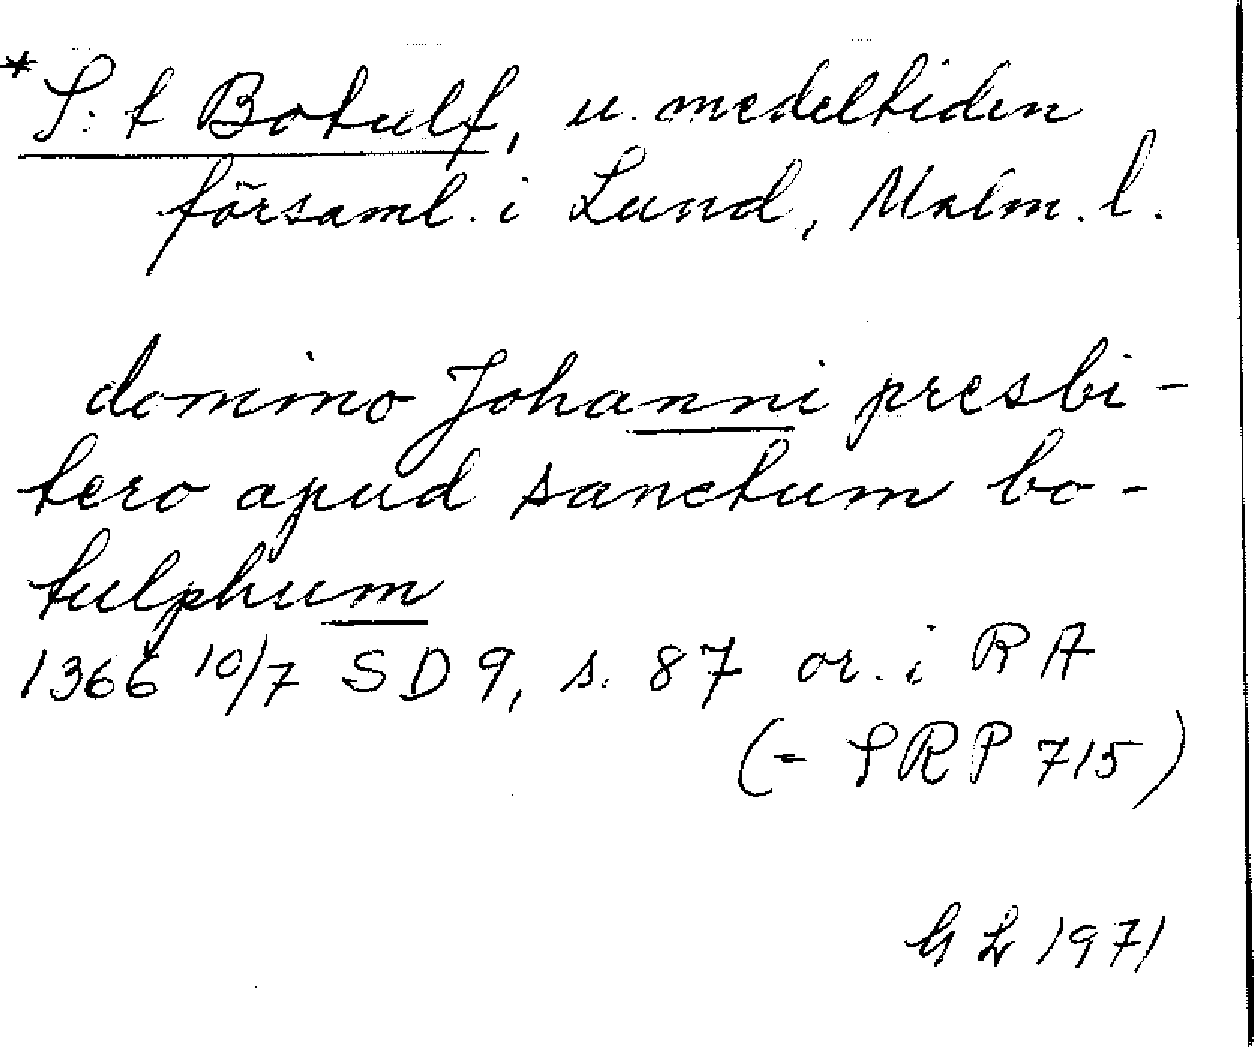 * S:t Botulf, u. medeltiden
församl. i Lund, Malm. l.
domino Johanni presbi-
tero apud sanctum bo-
tulphum
1366 10/7 SD 9, s. 87 or. i RA
(= SRP 715)
GL 1971